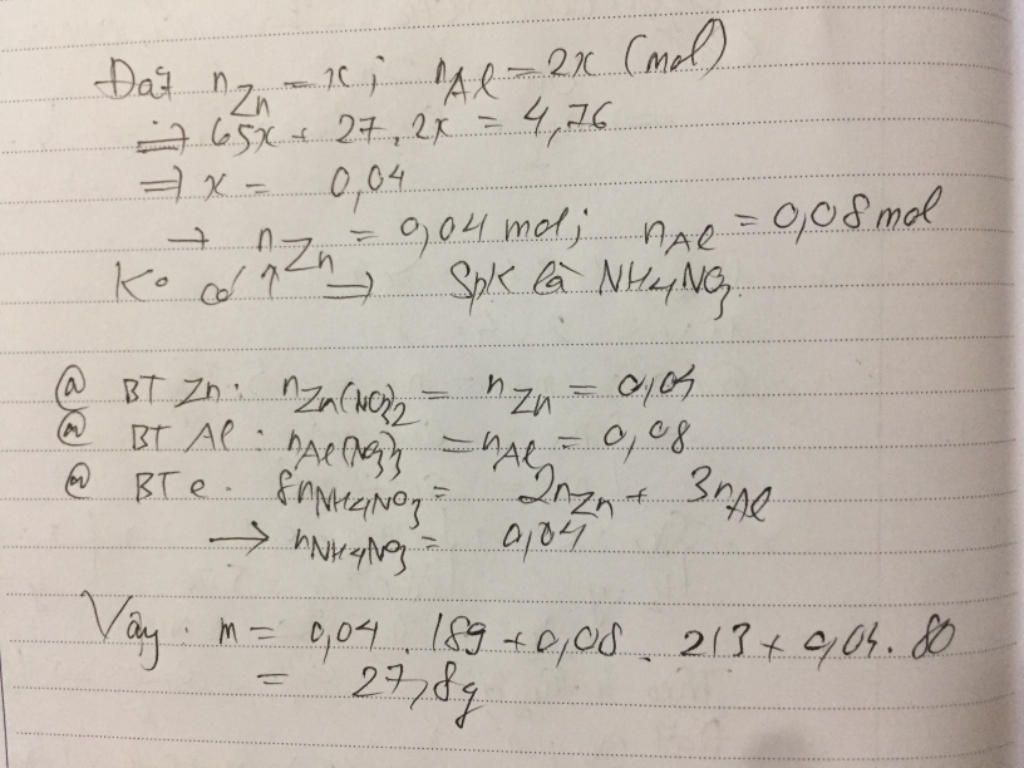 Đặt nZn = x; nAl = 2x (mol)
=> 65x + 27.2x = 4,76
=> x = 0,04
→ nZn = 0,04 mol; nAl = 0,08 mol
Ko có ↑ => Spk là NH4NO3.
@ BT Zn: nZn(NO3)2 = nZn = 0,04
@ BT Al: nAl(NO3)3 = nAl = 0,08
@ BT e. 8nNH4NO3 = 2nZn + 3nAl
→ nNH4NO3 = 0,04
Vậy: m = 0,04 . 189 + 0,08 . 213 + 0,04 . 80
= 27,8g